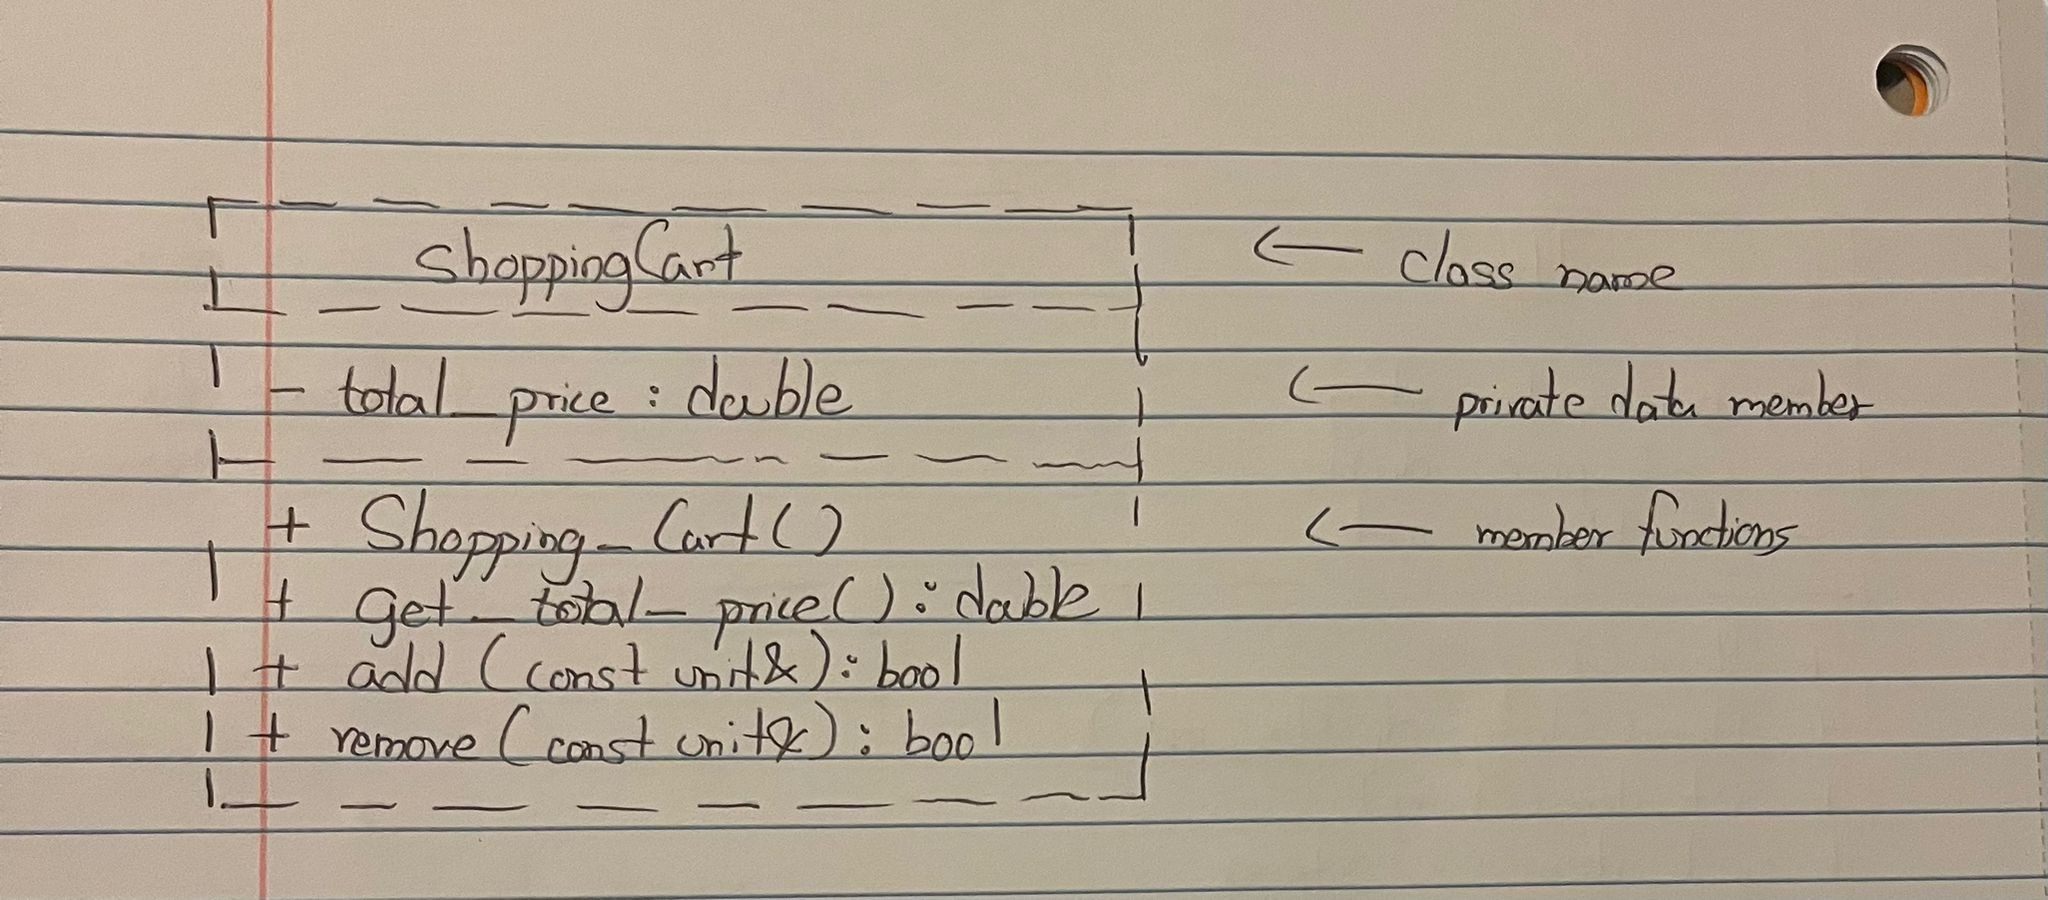 ShoppingCart ← class name
- total_price : double ← private data member
+ Shopping_Cart() ← member functions
+ get_total_price() : double
+ add (const unit&) : bool
+ remove (const unit&) : bool